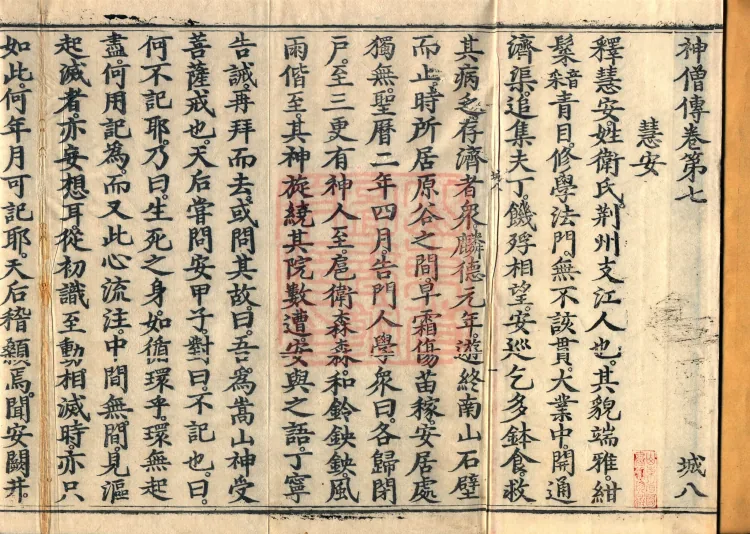 神僧傳卷第七 城八
慧安
釋慧安。姓衛氏。荆州支江人也。其貌端雅。紺
髮青目。修學法門。無不該貫。大業中。開通
濟渠。追集夫丁。饑殍相望。安巡乞多鉢食。救
其病乏。存濟者衆。麟德元年。遊終南山石壁
而止。時所居原谷之間。早霜傷苗稼。安居處
獨無。聖曆二年四月。告門人學衆曰。各歸閉
戶。至三更有神人至。扈衛森森。和鈴鉠鉠。風
雨偕至。其神旋繞其院數遭。安與之語。丁寧
告誡。再拜而去。或問其故。曰。吾爲嵩山神受
菩薩戒也。天后嘗問安甲子。對曰。不記也。曰。
何不記耶。乃曰。生死之身。如循環乎。環無起
盡。何用記為。而又此心流注。中間無間。見漚
起滅者。亦妄想耳。從初識至動相滅時。亦只
如此。何年月可記耶。天后稽顙焉。聞安闕井。